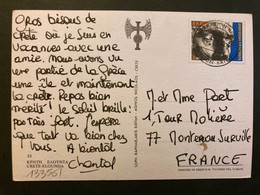 Gros bisous de
Crète où je suis en
vacances avec une
amie. Nous avons vu
une partie de la Grèce
une île et maintenant
la Crète. Repos bien
mérité! Le Soleil brille!
pas très fort. J'espère
que tout va bien chez
vous. A bientôt
Chantal
ΚΡΗΤΗ ΕΛΟΥΝΤΑ
CRETE-ELOUNDA
133561
Mr et Mme Poët
1 Tour Mokere
77 Montereau Surville
FRANCE